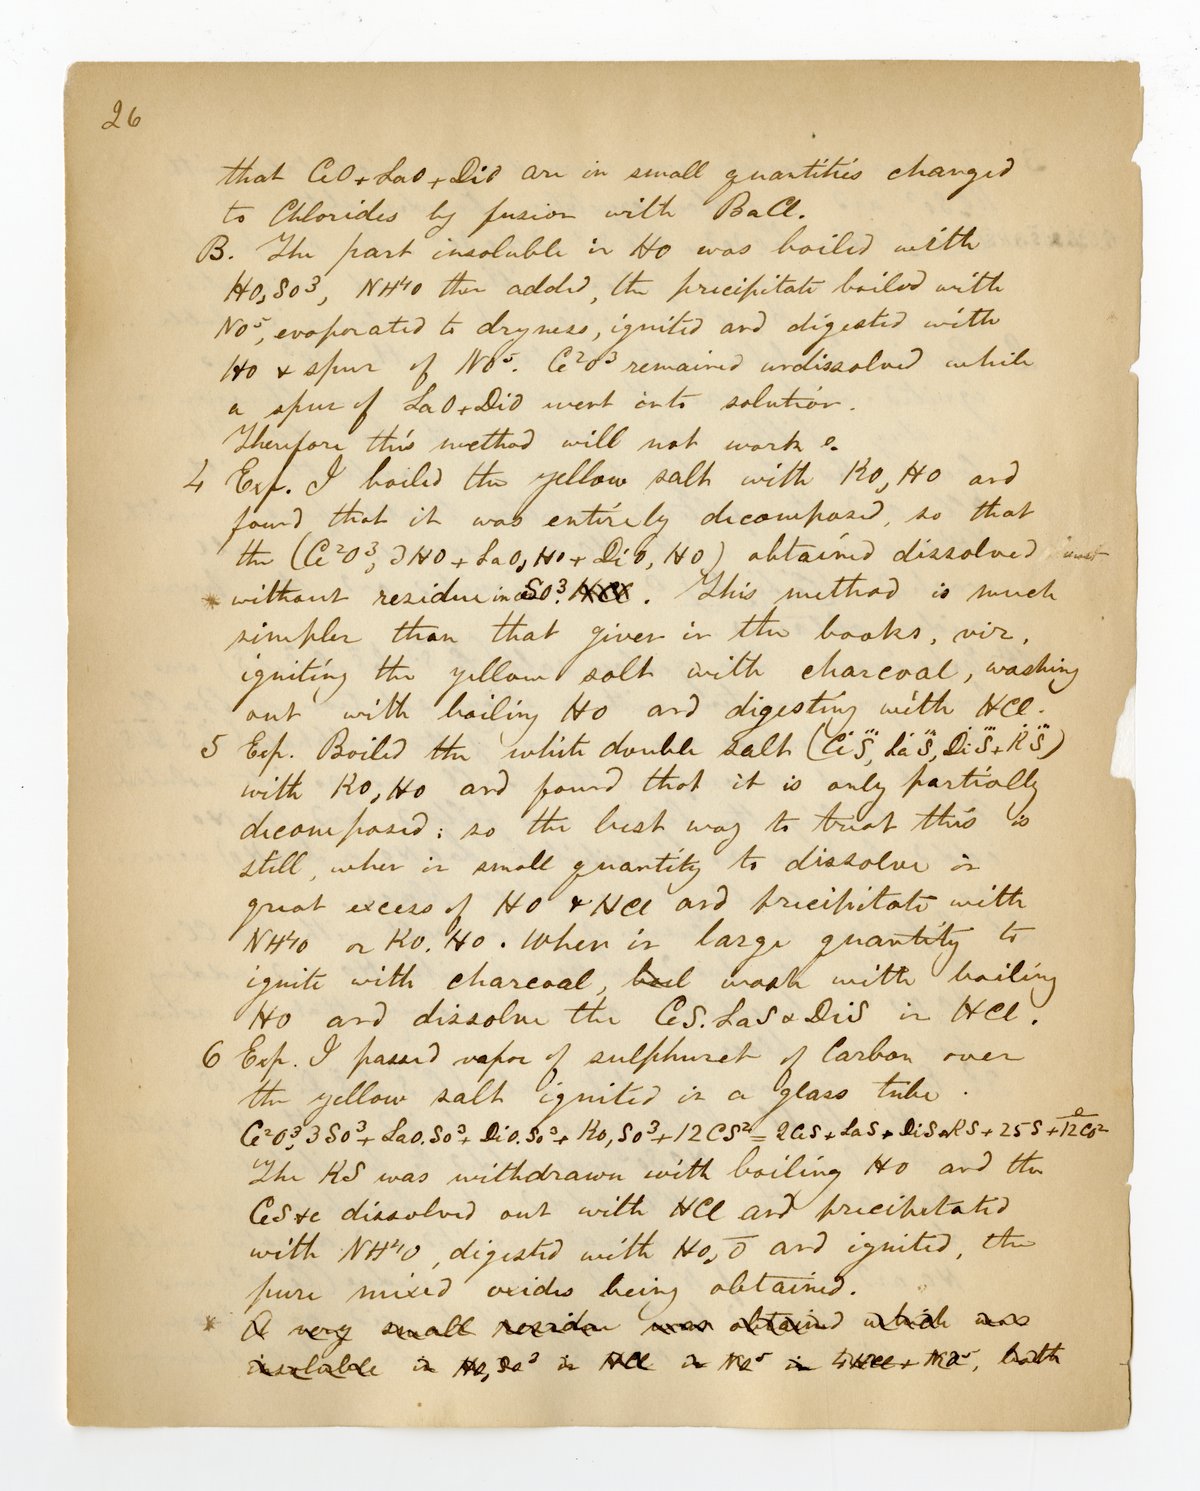 26
that CeO + LaO + DiO are in small quantities changed
to Chlorides by fusion with BaCl.
B. The part insoluble in HO was boiled with
HO,SO³, NH⁴O then added, the precipitate boiled with
NO⁵, evaporated to dryness, ignited and digested with
HO & spur of NO⁵. Ce²O³ remained undissolved while
a spur of LaO + DiO went into solution.
Therefore this method will not work.
4 Exp. I boiled the yellow salt with KO,HO and
found that it was entirely decomposed, so that
the (Ce²O³, 3HO + LaO,HO + DiO, HO) obtained dissolved
* without residue in SO³. HCl. This method is much
simpler than that given in the books, viz,
igniting the yellow salt with charcoal, washing
out with boiling HO and digesting with HCl.
5 Exp. Boiled the white double salt (Ċe S⃛, L̇a S⃛, Ḋi S⃛ + K̇ S⃛)
with KO,HO and found that it is only partially
decomposed; so the best way to treat this is
still, when in small quantity to dissolve in
great excess of HO & HCl and precipitate with
NH⁴O or KO.HO. When in large quantity to
ignite with charcoal, boil wash with boiling
HO and dissolve the CeS. LaS & DiS in HCl.
6 Exp. I passed vapor of sulphuret of Carbon over
the yellow salt ignited in a glass tube.
Ce²O³,3SO³ + LaO.SO³ + DiO.SO³ + KO,SO³ + 12CS² = 2CeS + LaS + DiS + KS + 25S + 12CO²
The KS was withdrawn with boiling HO and the
CeS &c dissolved out with HCl and precipitated
with NH⁴O, digested with HO,O̅ and ignited, the
pure mixed oxides being obtained.
* A very small residue was obtained which was
insoluble in HO,SO³ in HCl in NO⁵ in 4HCl + NO⁵, both